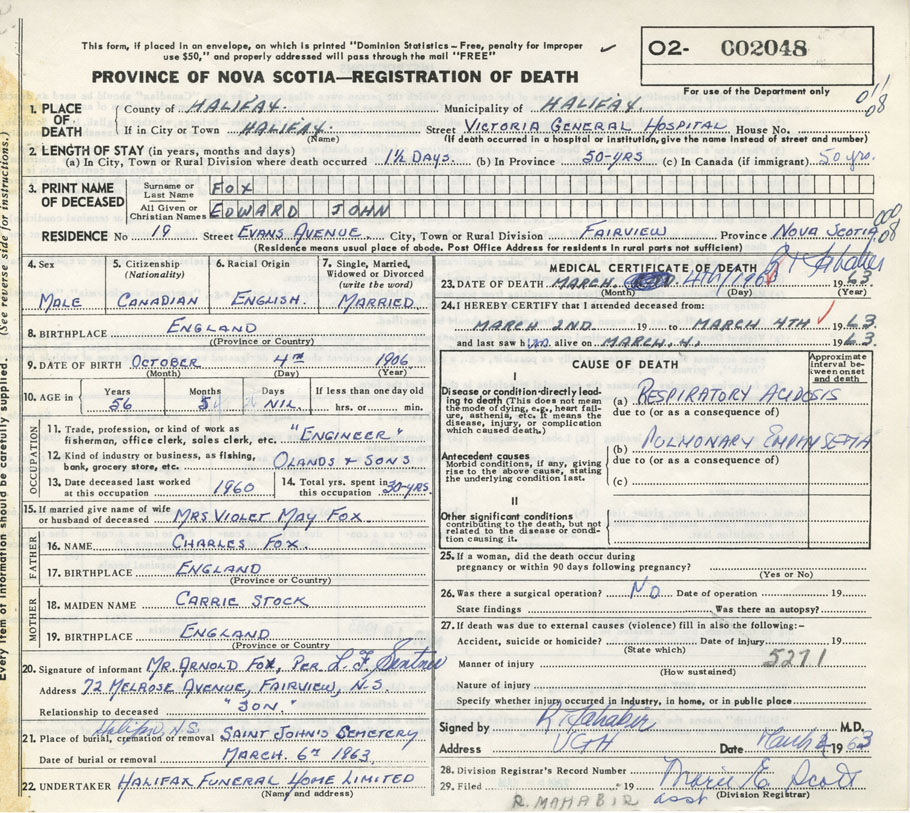 This form, if placed in an envelope, on which is printed "Dominion Statistics – Free, penalty for improper
use $50," and properly addressed will pass through the mail "FREE"
02- C02048
For use of the Department only
PROVINCE OF NOVA SCOTIA—REGISTRATION OF DEATH
1. PLACE OF DEATH County of HALIFAX. Municipality of HALIFAX.
If in City or Town HALIFAX. (Name) Street VICTORIA GENERAL HOSPITAL House No.
(If death occurred in a hospital or institution, give the name instead of street and number)
2. LENGTH OF STAY (in years, months and days)
(a) In City, Town or Rural Division where death occurred 1½ DAYS. (b) In Province 50-YRS (c) In Canada (if immigrant) 50 yrs.
3. PRINT NAME OF DECEASED Surname or Last Name FOX
All Given or Christian Names EDWARD JOHN
RESIDENCE No 19 Street EVANS AVENUE. City, Town or Rural Division FAIRVIEW Province NOVA SCOTIA
(Residence means usual place of abode. Post Office Address for residents in rural parts not sufficient)
4. Sex MALE
5. Citizenship (Nationality) CANADIAN
6. Racial Origin ENGLISH.
7. Single, Married, Widowed or Divorced (write the word) MARRIED
8. BIRTHPLACE ENGLAND
(Province or Country)
9. DATE OF BIRTH OCTOBER 4TH 1906
(Month) (Day) (Year)
10. AGE in Years 56 Months 5 Days NIL. If less than one day old hrs. or min.
OCCUPATION
11. Trade, profession, or kind of work as fisherman, office clerk, sales clerk, etc. "ENGINEER"
12. Kind of industry or business, as fishing, bank, grocery store, etc. OLANDS & SONS
13. Date deceased last worked at this occupation 1960
14. Total yrs. spent in this occupation 30-YRS.
15. If married give name of wife or husband of deceased MRS VIOLET MAY FOX.
FATHER
16. NAME CHARLES FOX.
17. BIRTHPLACE ENGLAND
(Province or Country)
MOTHER
18. MAIDEN NAME CARRIE STOCK
19. BIRTHPLACE ENGLAND
(Province or Country)
20. Signature of informant MR. ARNOLD FOX, PER L. F.
Address 72 MELROSE AVENUE, FAIRVIEW, N.S.
Relationship to deceased "SON"
Halifax, N.S.
21. Place of burial, cremation or removal SAINT JOHN'S CEMETERY
Date of burial or removal MARCH. 6TH 1963
22. UNDERTAKER HALIFAX FUNERAL HOME LIMITED
(Name and address)
MEDICAL CERTIFICATE OF DEATH
23. DATE OF DEATH MARCH 4TH/1963 1963.
(Month) (Day) (Year)
24. I HEREBY CERTIFY that I attended deceased from:
MARCH 2ND. 19 to MARCH 4TH 1963.
and last saw him alive on MARCH. 4. 1963.
CAUSE OF DEATH
Approximate interval between onset and death
I
Disease or condition directly leading to death (This does not mean the mode of dying, e.g., heart failure, asthenia, etc. It means the disease, injury, or complication which caused death.)
(a) RESPIRATORY ACIDOSIS
due to (or as a consequence of)
Antecedent causes
Morbid conditions, if any, giving rise to the above cause, stating the underlying condition last.
(b) PULMONARY
due to (or as a consequence of)
(c)
II
Other significant conditions
contributing to the death, but not related to the disease or condition causing it.
25. If a woman, did the death occur during pregnancy or within 90 days following pregnancy?
(Yes or No)
26. Was there a surgical operation? NO Date of operation 19
State findings Was there an autopsy?
27. If death was due to external causes (violence) fill in also the following:–
Accident, suicide or homicide? Date of injury 19
(State which)
5271
Manner of injury
(How sustained)
Nature of injury
Specify whether injury occurred in Industry, in home, or in public place
Signed by R Mahabir M.D.
Address VGH Date March 1963
28. Division Registrar's Record Number
29. Filed 19 Marie E. Scott
(Division Registrar)
R. MAHABIR asst
Every item of information should be carefully supplied. (See reverse side for instructions.)